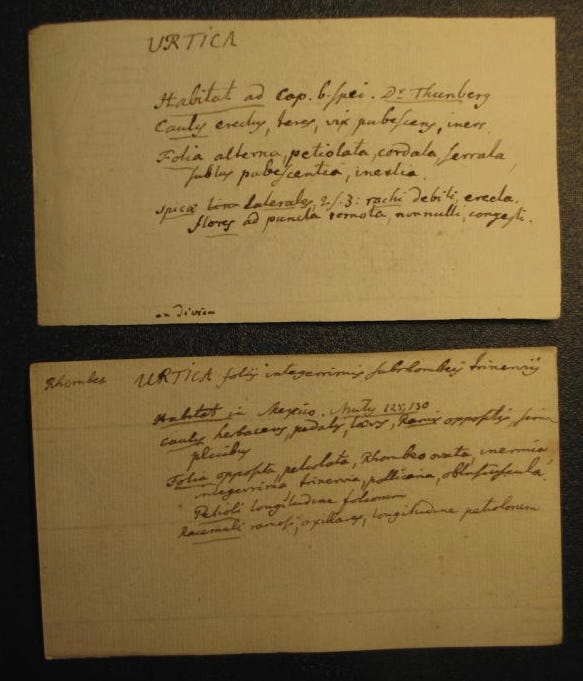 URTICA
Habitat ad Cap. b. spei. Dr Thunberg
Caulis erectus, teres, vix pubescens, iners
Folia alterna, petiolata, cordata, serrata,
subtus pubescentia, inertia.
Spicæ laterales, 2 s. 3: rachi debili, erecta.
flores ad puncta remota, nonnulli, congesti.
an divica
Rhombea URTICA foliis integerrimis subrhombeis trinerviis
Habitat in Mexico. Mutis 125, 130
Caulis herbaceus, pedalis, lævis, Ramis oppositis, sim
plicibus
Folia opposita, petiolata, Rhombeo ovata, inermia
integerrima trinervia, pollicaria, obtusiuscula,
Petioli longitudine foliorum
Racemuli ramosi, axillares, longitudine petiolorum